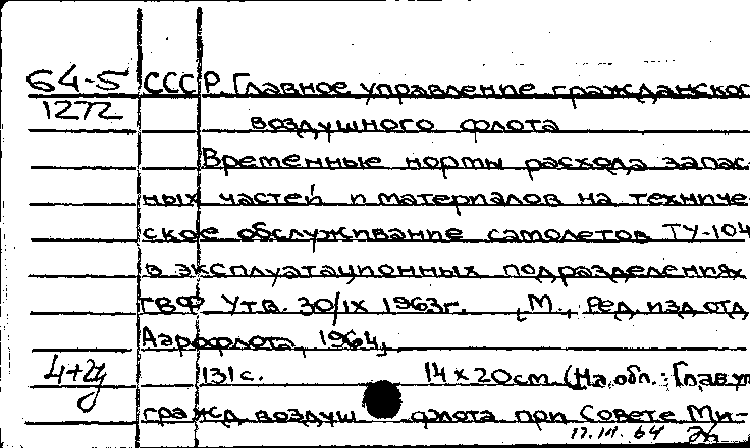 64-5 СССР. Главное управление гражданског
1272
воздушного флота
Временные нормы расхода запас-
ных частей и материалов на техниче-
ское обслуживание самолетов ТУ-104
в эксплуатационных подразделениях
ГВФ Утв. 30/IX 1963г. [М., Ред. изд. отд.
Аэрофлота, 1964].
131 с. 14×20 см. (На обл.: Глав. уп
гражд воздуш флота при Совете Ми-
64